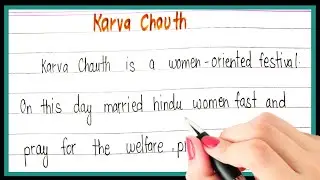 Karva Chauth
Karva Chauth is a women-oriented festival.
On this day married hindu women fast and
pray for the welfare